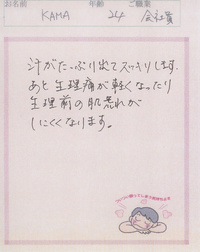 お名前 年齢 ご職業
KAMA 24 会社員
汁がたっぷり出てスッキリします。
あと生理痛が軽くなったり
生理前の肌荒れが
しにくくなります。